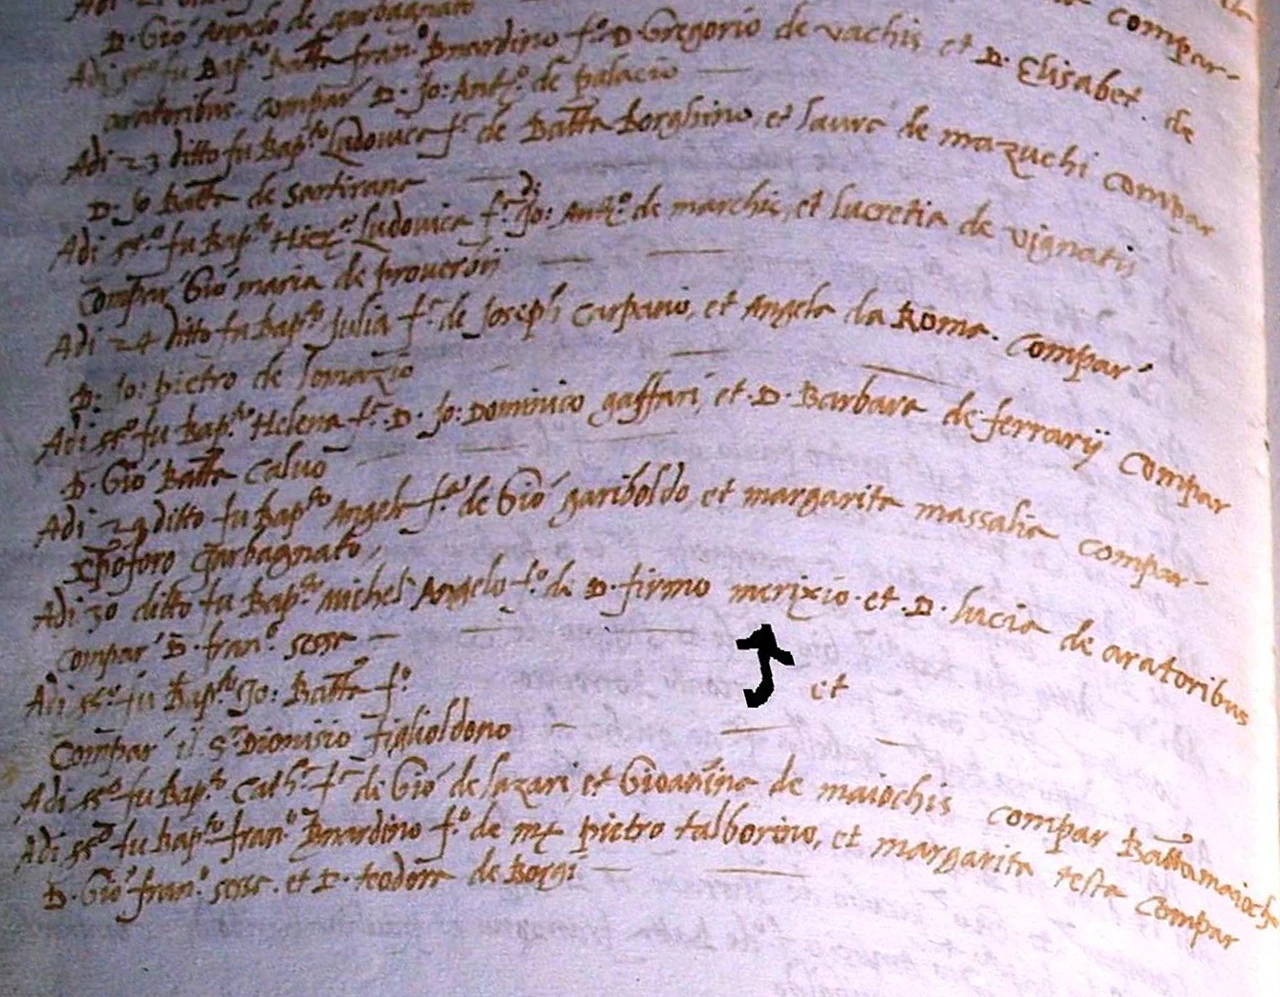 D. Gió Antonio de garbagnato compar-
Adi ss.º fu Bap.to Batta fran.º Bnardino f.º D. Gregorio de vachis et D. Elisabet de
aratoribus. Compar D. Jo: Ant.º de palacio
Adi 23 ditto fu Bap.to Ludovica f.ª de Batta Borghino, et laura de mazuchi Compar
D. Jo Batta de Sartirana
Adi ss.º fu Bap.to Ludovica f.ª di Jo: Ant.º de marchis, et lucretia de vignatis
Compar Gió maria de proverbij
Adi 24 ditto fu Bap.to Julia f.ª de Joseph Carpano, et Angela da Roma. Compar
D. Jo: pietro de lomazio
Adi ss.º fu Bap.to Helena f.ª D. Jo: Dominico gaffuri, et D. Barbara de ferrarij Compar
D. Gió Batta calvo
Adi 29 ditto fu Bap.to Angela f.ª de Gió gariboldo, et margarita massalia compar-
Xpoforo garbagnato,
Adi 30 ditto fu Bap.to Michel Angelo f.º de D. firmo merixio. et. D. lucia de aratoribus
compar D. fran.º sessa
Adi ss.º fu Bap.to Jo: Batta f.º et
Compar il S.r Dionisio figlioldono
Adi ss.º fu Bap.to Cath.ª f.ª de Gió de lazari, et Gioanina de maiochis compar Batta maiocho
Adi ss.º fu Bap.to fran.º Bnardino f.º de pietro talborino, et margarita testa Compar
D. Gió fran.º sessa. et D. teodora de Borgi